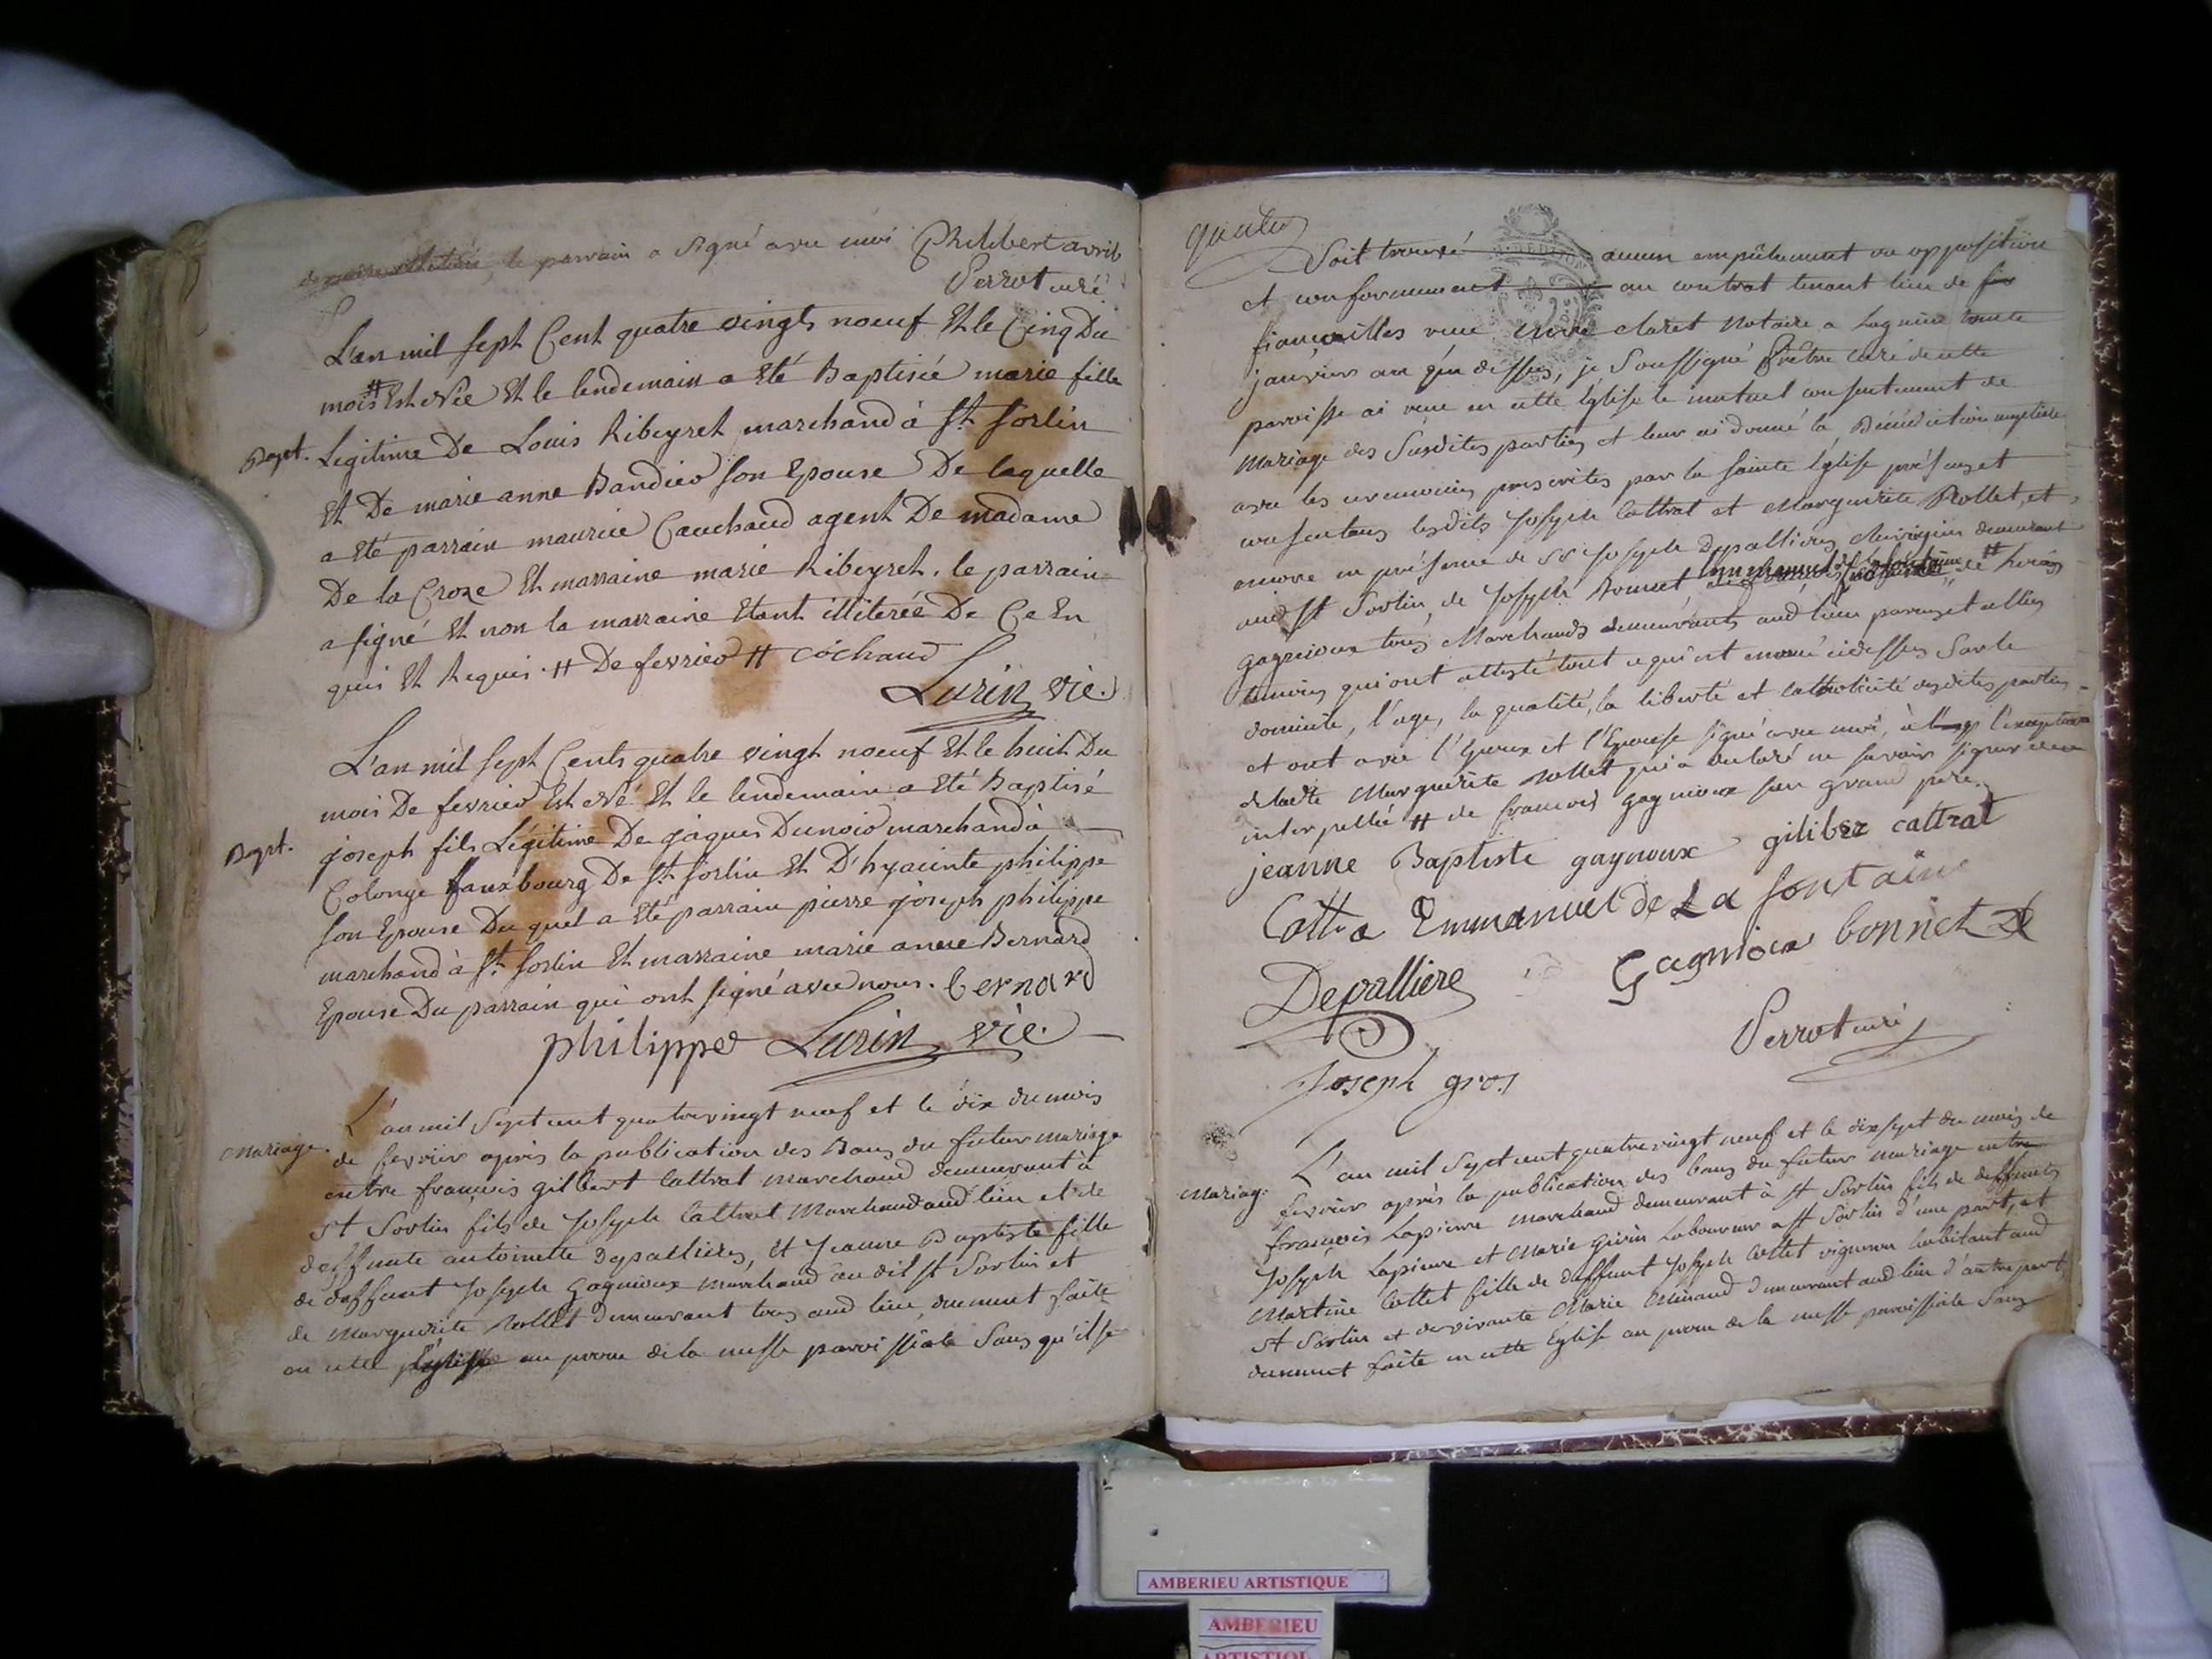 le parrain a signé avec moi Philibert avril
Perrot curé
L'an mil sept Cent quatre vingts noeuf Et le Cinq Du
mois # Est Née Et le lendemain a Eté Baptisée marie fille
Bapt. Legitime De Louis Ribeyret marchand à St. Sorlin
Et De marie anne Bandier son Epouse De laquelle
a Eté parrain maurice Cauchaud agent De madame
De la Croze Et marraine marie Ribeyret. le parrain
a signé Et non la marraine Etant illiterée De Ce En
quis Et Requis. # De fevrier # cochaud
Lurin vic.
L'an mil sept Cents quatre vingt noeuf Et le huit Du
mois De fevrier Est Né Et le lendemain a Eté Baptisé
Bapt. joseph fils Légitime De jaques Dunoir marchand à
Colonge fauxbourg De St. Sorlin Et D'hyacinte philippe
son Epouse Du quel a Eté parrain pierre joseph philippe
marchand à St. Sorlin Et marraine marie anne Bernard
Epouse Du parrain qui ont signé avec nous. bernard
philippe Lurin vic.
L'an mil Sept cent quatrevingt neuf et le dix du mois
Mariage. de fevrier après la publication des Bans du futur mariage
entre françois gilbert Cattrat marchand demeurant à
St Sorlin fils de Joseph Cattrat Marchand aud lieu et de
deffunte antoinette Depallieres, et Jeanne Baptiste fille
de deffunt Joseph Gagnioux marchand au dit St Sorlin et
de Marguerite Rollet demeurant tous aud lieu, duement faite
en cette Eglise au prone de la messe paroissiale Sans qu'il se
Soit trouvé aucun empêchement ou opposition
et conformement au contrat tenant lieu de
fiançailles reçu Claret Notaire a Lagnieu
janvier an que dessus, je Soussigné Prêtre Curé de cette
paroisse ai reçu en cette Eglise le mutuel consentement de
Mariage des Susdites parties et leur ai donné la Bénédiction nuptiale
avec les ceremonies prescrites par la Sainte Eglise présans et
consentans lesdits Joseph Cattrat et Marguerite Rollet, et
encore en présence de Sr Joseph Depallieres Chirurgien demeurant
aud St Sorlin, de Joseph Bonnet,
gagnioux tous Marchands demeurants aud lieu parens et alliés
temoins qui ont attesté tout ce qui est enoncé cidessus Sur le
domicile, l'age, la qualité, la liberté et catholicité desdites parties
et ont avec l'Epoux et l'Epouse signé avec moi, à l'exception
de ladte Marguerite Rollet qui a declaré ne savoir signer de ce
interpellée # de françois gagnioux son grand pere.
jeanne Baptiste gagnoux giliber cattrat
Cattra Emmanuel de La fontaine
Depalliere Gagnioux bonnet
Perrot curé
Joseph gros
L'an mil Sept cent quatrevingt neuf et le dixsept du mois de
Mariag. fevrier après la publication des bans du futur mariage entre
françois Lapierre marchand demeurant à St Sorlin fils de deffunts
Joseph Lapierre et Marie Girin Laboureur a St Sorlin d'une part, et
Martine Collet fille de deffunt Joseph Collet vigneron habitant aud
St Sorlin et de vivante Marie Minaud demeurant aud lieu d'autre part,
duement faite en cette Eglise au prone de la messe paroissiale Sans
AMBERIEU ARTISTIQUE
AMBERIEU
ARTISTIQUE